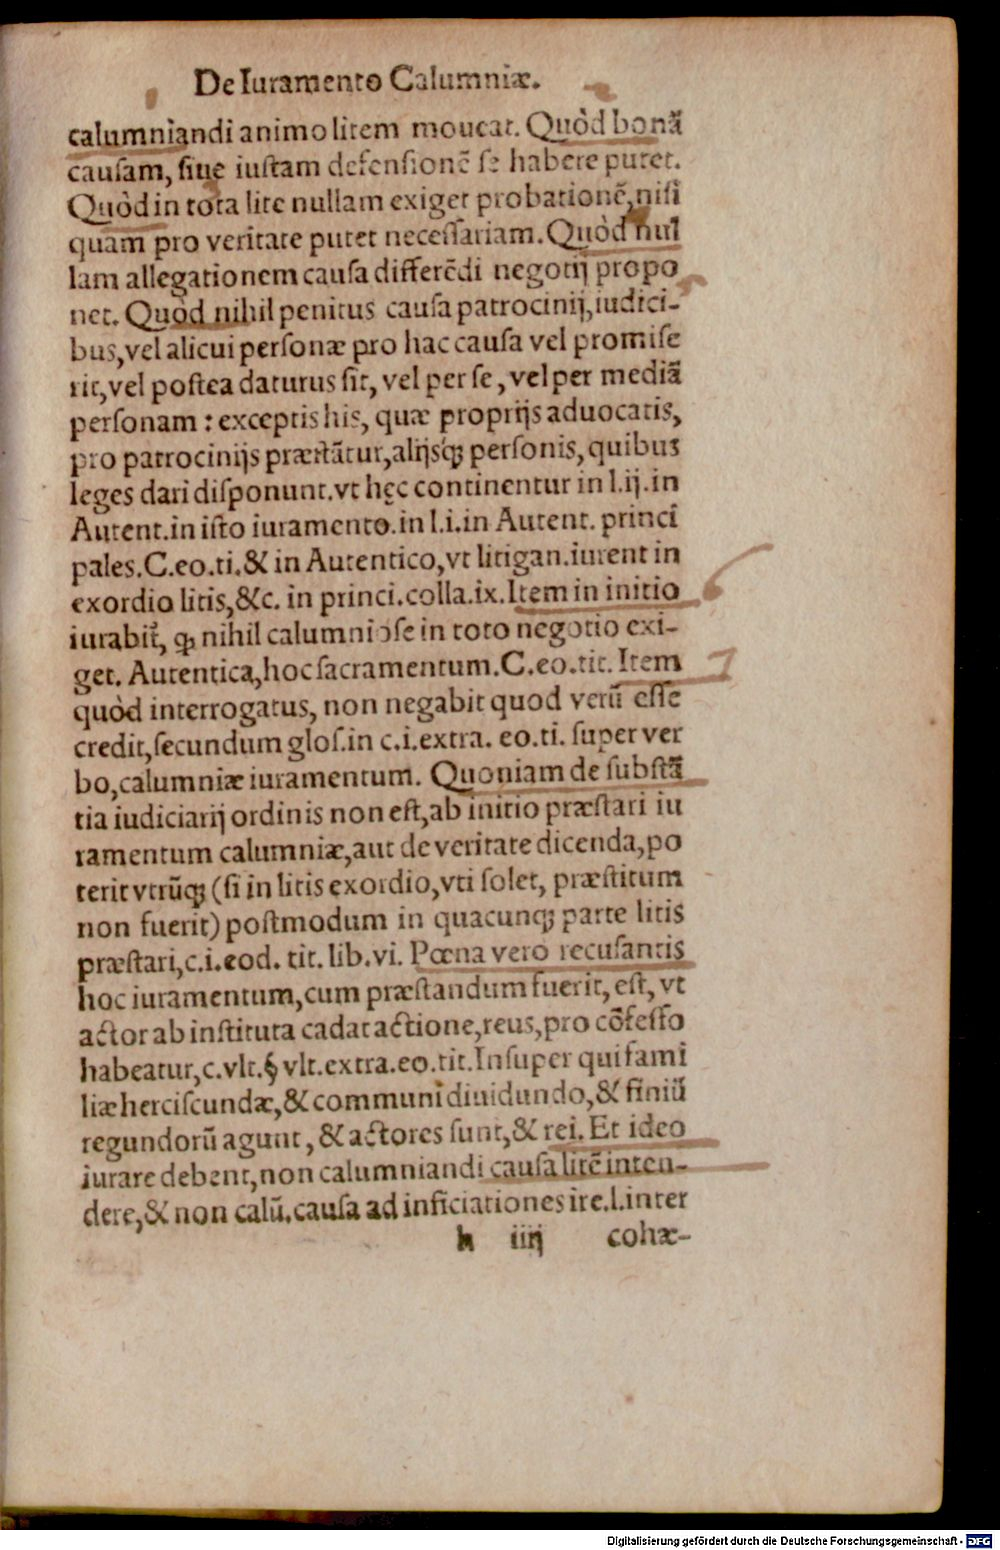 De Iuramento Calumniæ.
calumniandi animo litem moueat. Quòd bonā
causam, siue iustam defensionē se habere putet.
Quòd in tota lite nullam exiget probationē, nisi
quam pro veritate putet necessariam. Quòd nul
lam allegationem causa differēdi negotij propo
net. Quòd nihil penitus causa patrocinij, iudici-
bus, vel alicui personæ pro hac causa vel promise
rit, vel postea daturus sit, vel per se, vel per mediā
personam: exceptis his, quæ proprijs aduocatis,
pro patrocinijs præstātur, alijsq́; personis, quibus
leges dari disponunt. vt hęc continentur in l.ij. in
Autent. in isto iuramento. in l.i. in Autent. princi
pales. C. eo. ti. & in Autentico, vt litigan. iurent in
exordio litis, &c. in princi. colla. ix. Item in initio
iurabit̃, ꝙ nihil calumniose in toto negotio exi-
get. Autentica, hoc sacramentum. C. eo. tit. Item
quòd interrogatus, non negabit quod verū esse
credit, secundum glos. in c.i. extra. eo. ti. super ver
bo, calumniæ iuramentum. Quoniam de substā
tia iudiciarij ordinis non est, ab initio præstari iu
ramentum calumniæ, aut de veritate dicenda, po
terit vtrūq; (si in litis exordio, vti solet, præstitum
non fuerit) postmodum in quacunq; parte litis
præstari, c.i. eod. tit. lib. vi. Pœna vero recusantis
hoc iuramentum, cum præstandum fuerit, est, vt
actor ab instituta cadat actione, reus, pro cōfesso
habeatur, c. vlt. § vlt. extra. eo. tit. Insuper qui fami
liæ herciscundæ, & communi diuidundo, & finiū
regundorū agunt, & actores sunt, & rei. Et ideo
iurare debent, non calumniandi causa litē inten-
dere, & non calū. causa ad inficiationes ire. l. inter
h iiij cohæ-
Digitalisierung gefördert durch die Deutsche Forschungsgemeinschaft - DFG